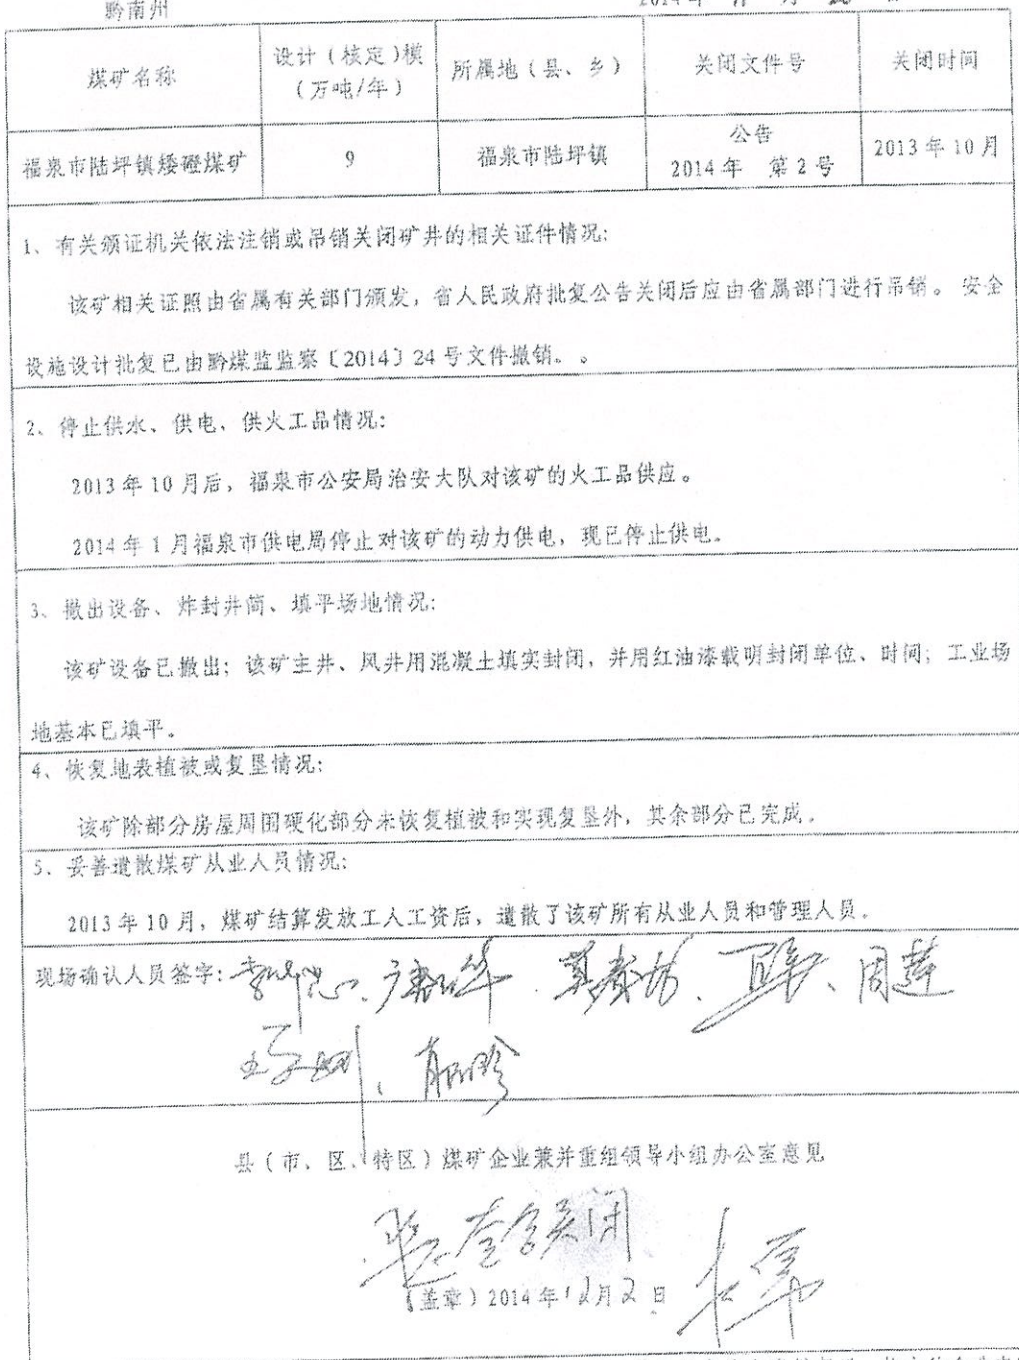 黔南州
2014年 月
煤矿名称
设计(核定)模
(万吨/年)
所属地(县、乡)
关闭文件号
关闭时间
福泉市陆坪镇矮磴煤矿
9
福泉市陆坪镇
公告
2014年 第2号
2013年10月
1、有关颁证机关依法注销或吊销关闭矿井的相关证件情况:
该矿相关证照由省属有关部门颁发,省人民政府批复公告关闭后应由省属部门进行吊销。 安全
设施设计批复已由黔煤监监察〔2014〕24号文件撤销。。
2、停止供水、供电、供火工品情况:
2013年10月后,福泉市公安局治安大队对该矿的火工品供应。
2014年1月福泉市供电局停止对该矿的动力供电,现已停止供电。
3、撤出设备、炸封井筒、填平场地情况:
该矿设备已撤出;该矿主井、风井用混凝土填实封闭,并用红油漆载明封闭单位、时间;工业场
地基本已填平。
4、恢复地表植被或复垦情况:
该矿除部分房屋周围硬化部分未恢复植被和实现复垦外,其余部分已完成。
5、妥善遣散煤矿从业人员情况:
2013年10月,煤矿结算发放工人工资后,遣散了该矿所有从业人员和管理人员。
现场确认人员签字: 周莲
县(市、区、特区)煤矿企业兼并重组领导小组办公室意见
关闭
(盖章)2014年12月2日